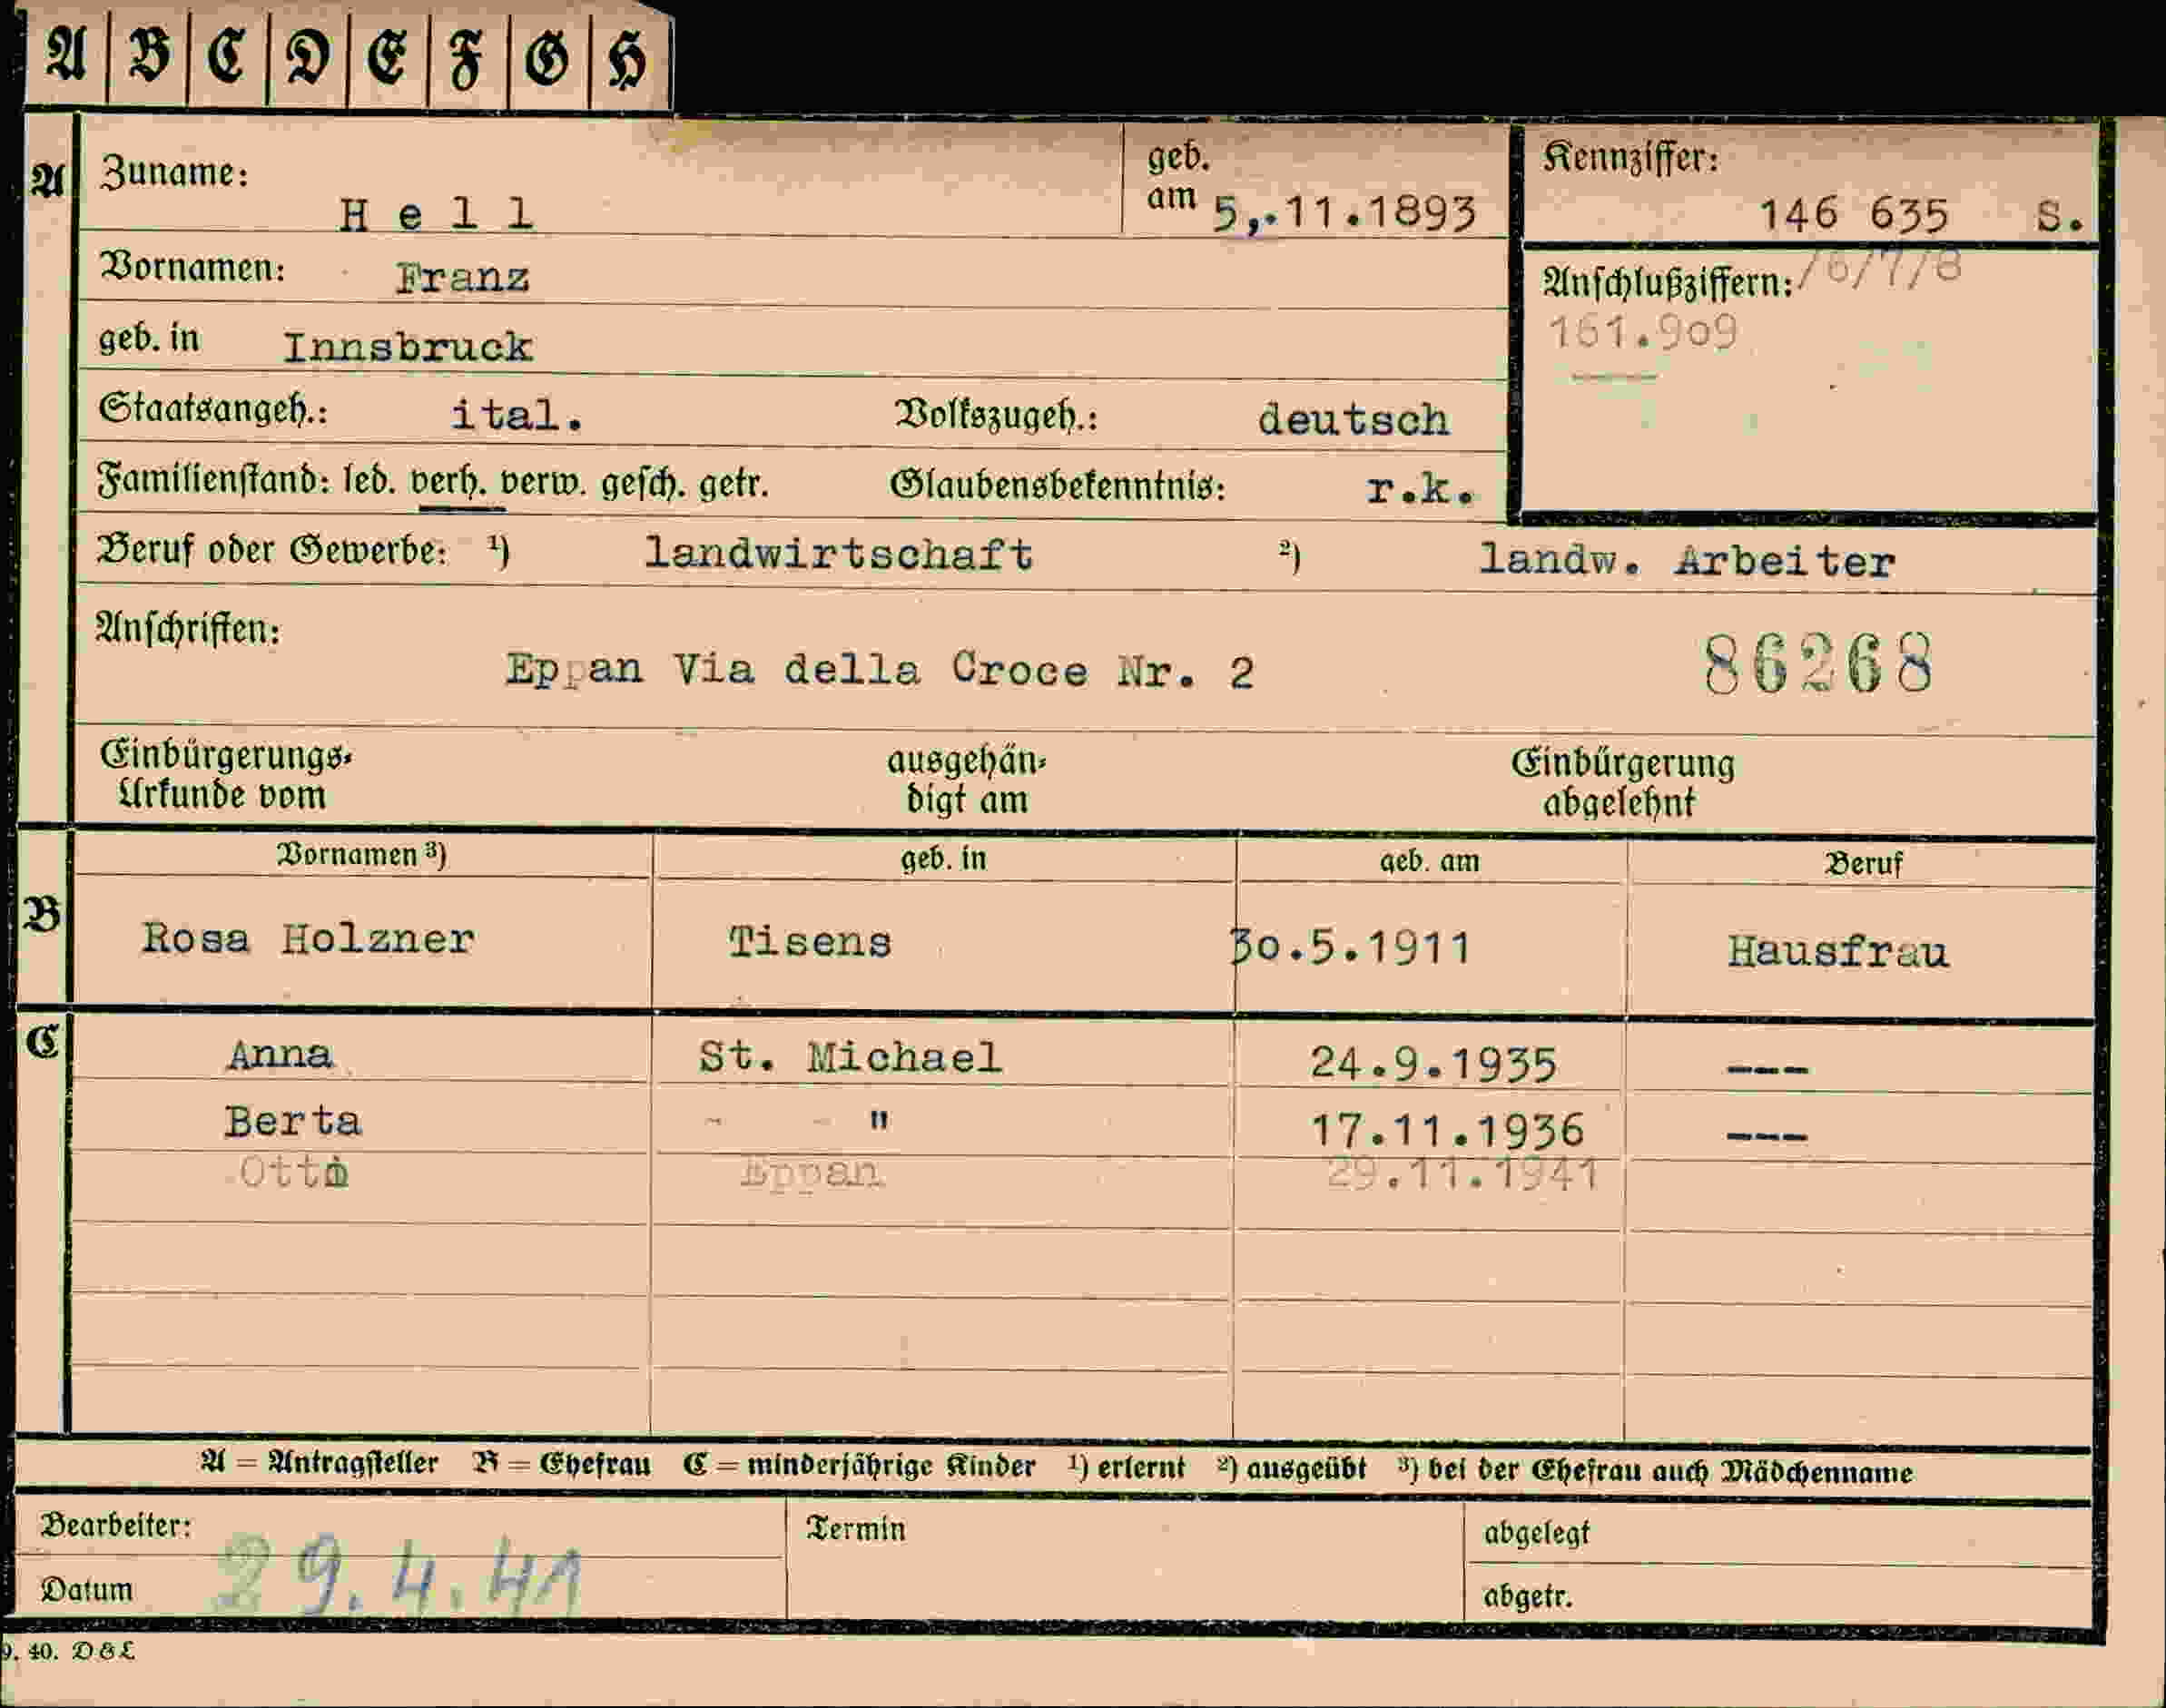 A B C D E F G H
A Zuname: H e l l geb. am 5,.11.1893 Kennziffer: 146 635 S.
Vornamen: Franz Anschlußziffern: /6/7/8
geb. in Innsbruck 161.909
Staatsangeh.: ital. Volkszugeh.: deutsch
Familienstand: led. verh. verw. gesch. getr. Glaubensbekenntnis: r.k.
Beruf oder Gewerbe: ¹) landwirtschaft ²) landw. Arbeiter
Anschriften: Eppan Via della Croce Nr. 2 86268
Einbürgerungs- ausgehän- Einbürgerung
Urkunde vom digt am abgelehnt
Vornamen ³) geb. in geb. am Beruf
B Rosa Holzner Tisens 30.5.1911 Hausfrau
C Anna St. Michael 24.9.1935 ---
Berta - - " 17.11.1936 ---
Otto Eppan 29.11.1941
A = Antragsteller B = Ehefrau C = minderjährige Kinder ¹) erlernt ²) ausgeübt ³) bei der Ehefrau auch Mädchenname
Bearbeiter: Termin abgelegt
Datum 29.4.41 abgetr.
9. 40. D&L